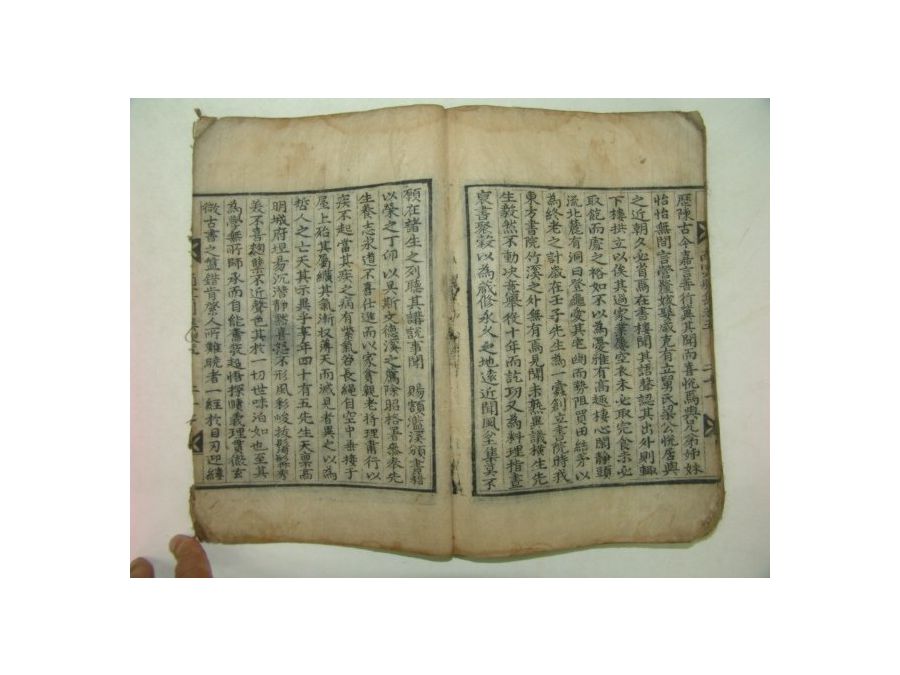 歷陳古今嘉言善行與其聞而喜悅焉與兄弟姊妹
怡怡無間言營隆娥娶威克有立舅氏梁公悅居興
之近朝久必省焉在書樓聞其語聲認其出外則輒
下樓拱立以俟其過家業屢空衣未必取完食未必
取飽而處之裕如不以為憂雅有高趣樓心閑靜頭
流北麓有洞曰登龜愛其宅幽而勢阻買田結茅以
為終老之計歲在壬子先生為一蠹創立書院時我
東方書院竹溪之外無有高見聞未熟異議橫生先
生毅然不動決意舉役十年而訖功又為料理楮畫
裒書聚穀以為藏修永久之地遠近聞風全集莫不
願在諸生之列聽其講說事聞 賜額灆溪頒書籍
以榮之丁卯 以吳斯文德溪之薦除昭格署參奉先
生養志求道不喜仕進而以家貧親老將理肅行以
疾不起當其疾之病有紫氣若長繩自空中垂接于
屋上殆其屬纊其氣漸收薄天而滅見者異之以為
哲人之亡天其示異乎享年四十有五先生天稟高
明城府坦易沉潛靜默喜怒不形風彩峻拔鬚髯秀
美不喜麴糵不近聲色其於一切世味泊如也至其
為學無所師承而自能奮發超悟探賾義理貫徹玄
微古書之簋錯肯綮人所難曉者一經於目刃迎縷